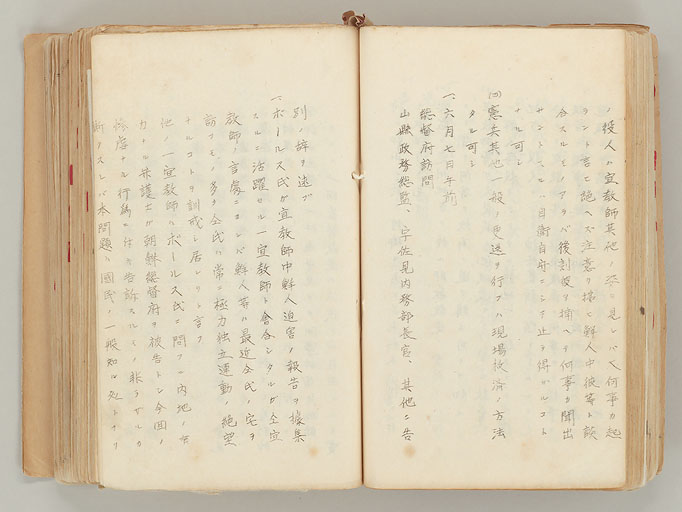 ノ役人ハ宣教師其他ノ姿ヲ見レバ又何事カ起
ラント言ヒ絶ヘズ注意ヲ拂ヒ鮮人中彼等ト談
合スルモノアラバ後刻彼ヲ捕ヘテ何事カ聞出
サントスルハ自衛自存ニシテ止ヲ得ザルコト
ナル可シ
(四)憲兵其他一般ノ更迭ヲ行フハ現場救済ノ方法
タル可シ
一、六月七日午前
総督府訪問
山縣政務総監、宇佐見内務部長官、其他ニ告
別ノ辞ヲ述ブ
一、ボールス氏ガ宣教師中鮮人迫害ノ報告ヲ據集
スルニ活躍セル一宣教師ト會合シタルガ仝宣
教師ノ言處ニヨレバ鮮人等ハ最近仝氏ノ宅ヲ
訪フモノ多ク仝氏ハ常ニ極力独立運動ノ絶望
ナルコトヲ訓戒シ居レリト言フ
他ノ一宣教師ハボールス氏ニ問フニ内地ノ有
力ナル弁護士ガ朝鮮総督府ヲ被告トシ今回ノ
残虐ナル行為ニ付キ告訴スルモノ非ザルカ
斯クスレバ本問題ハ國民ノ一般知ル処トナリ